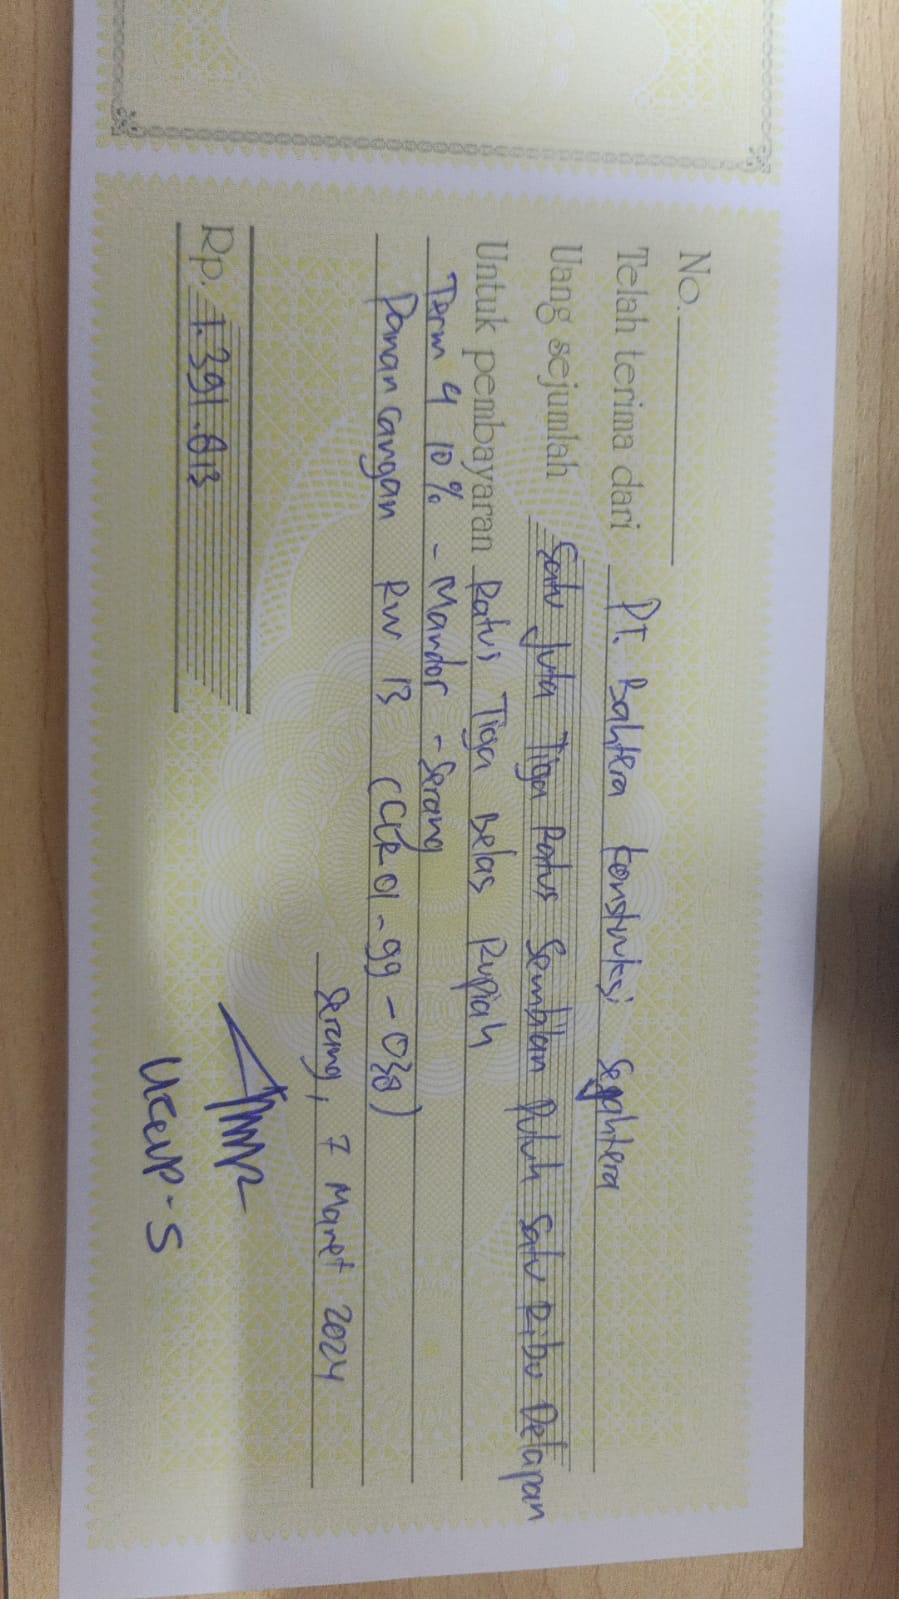 No.
Telah terima dari PT. Bahtera Konstruksi Sejahtera
Uang sejumlah Satu Juta Tiga Ratus Sembilan Puluh Satu Ribu Delapan
Untuk pembayaran Ratus Tiga Belas Rupiah
Term 4 10% - Mandor - Serang
Panancangan RW 13 (CLR 01-99-038)
Serang, 7 Maret 2024
Rp. 1.391.813
Ucup. S